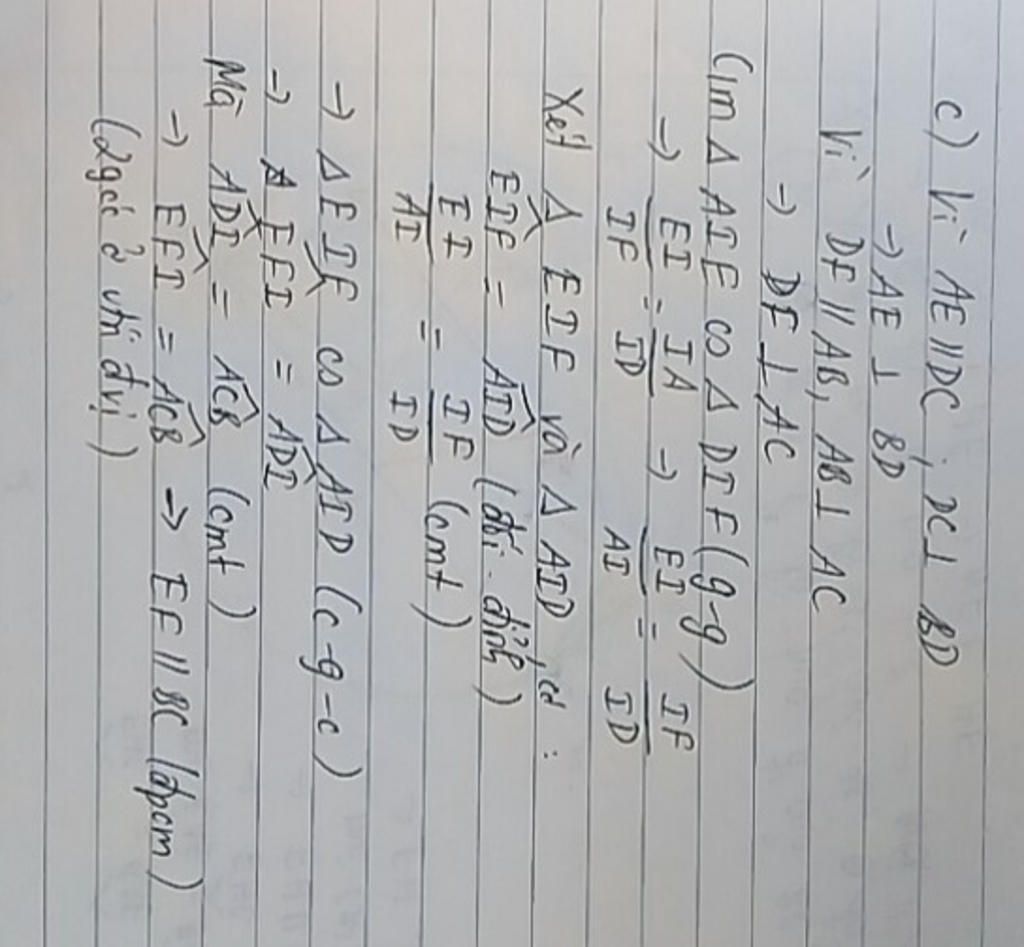 c) Vì AE // DC, DC ⊥ BD
→ AE ⊥ BD
Vì DF // AB, AB ⊥ AC
→ DF ⊥ AC
Cm Δ AIE co Δ DIF (g-g)
→ EI/IF = IA/ID → EI/AI = IF/ID
Xét Δ EIF và Δ AID có :
EIF^ = AID^ (đối đỉnh)
EI/AI = IF/ID (cmt)
→ Δ EIF co Δ AID (c-g-c)
→ EFI^ = ADI^
Mà ADI^ = ACB^ (cmt)
→ EFI^ = ACB^ → EF // BC (đpcm)
(2 góc ở vtrí đvị)